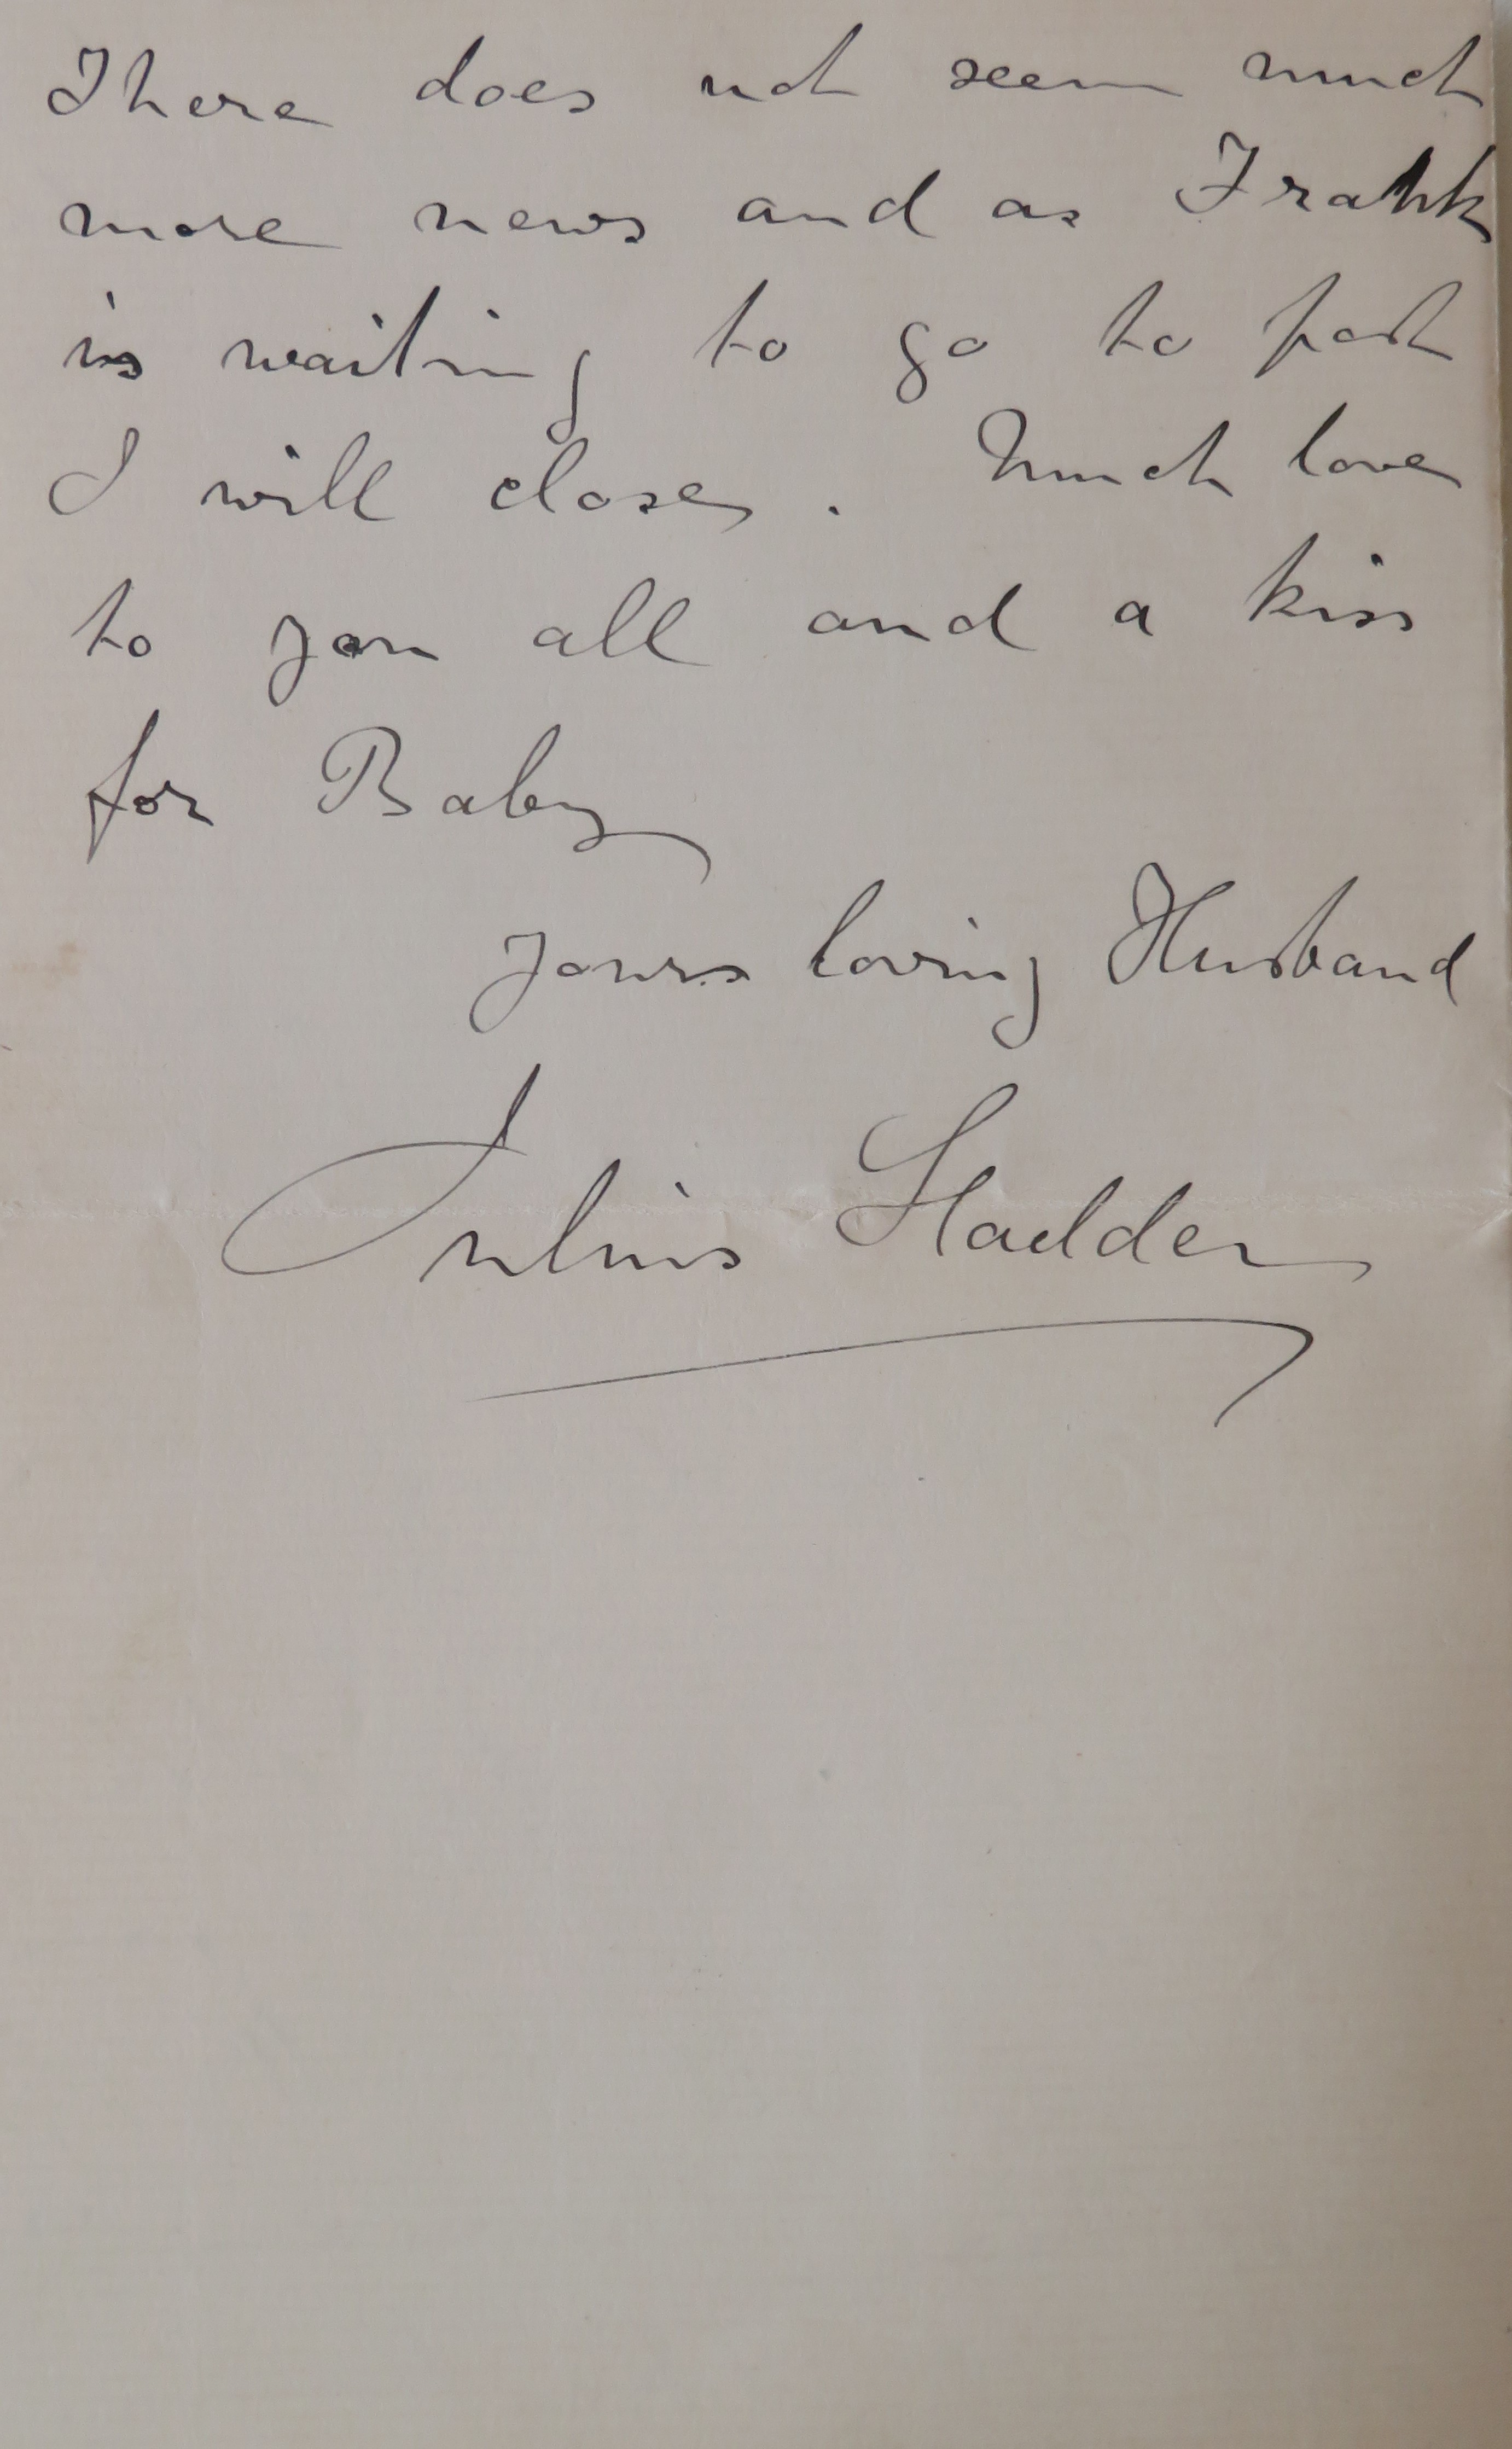 There does not seem much
more news and as Frank
is waiting to go to post
I will close. Much love
to you all and a kiss
for Baby
Yours loving Husband
Julius Hadder